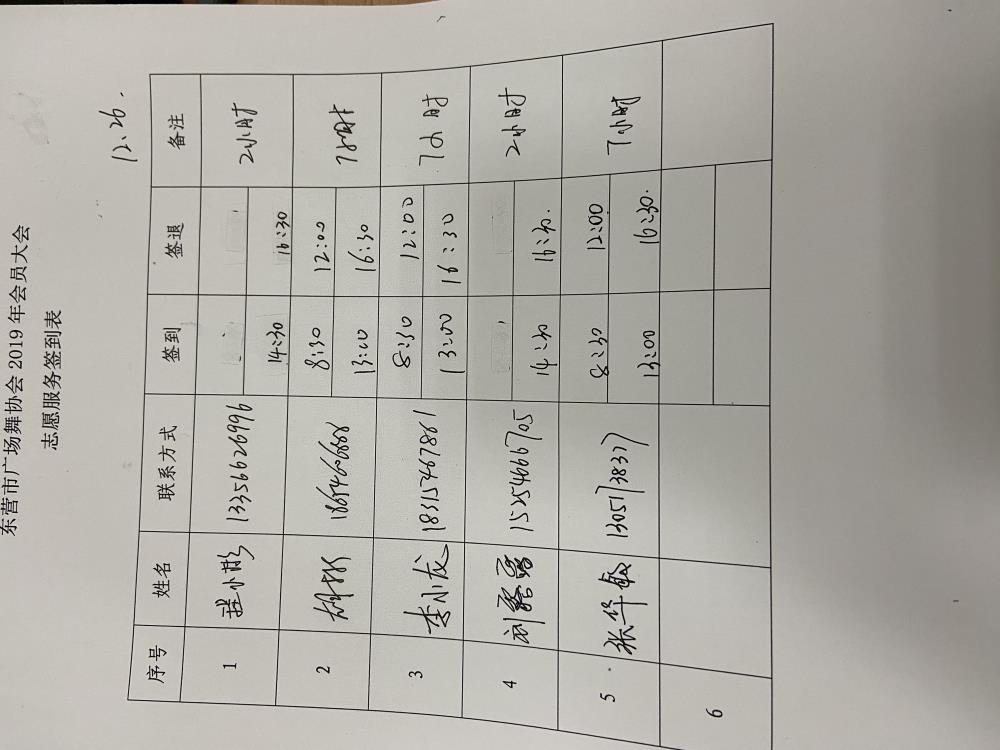 东营市广场舞协会2019年会员大会
志愿服务签到表
12.26.
序号 姓名 联系方式 签到 签退 备注
1 小彬 13356626996 14:30 16:30 2小时
2 8:30 12:00 7小时
13:00 16:30
3 李小龙 18315467861 8:30 12:00 7小时
13:00 16:30
4 刘 15254666705 14:30 16:30. 2小时
5 张华敏 13051738377 8:30 12:00 7小时
13:00 16:30.
6